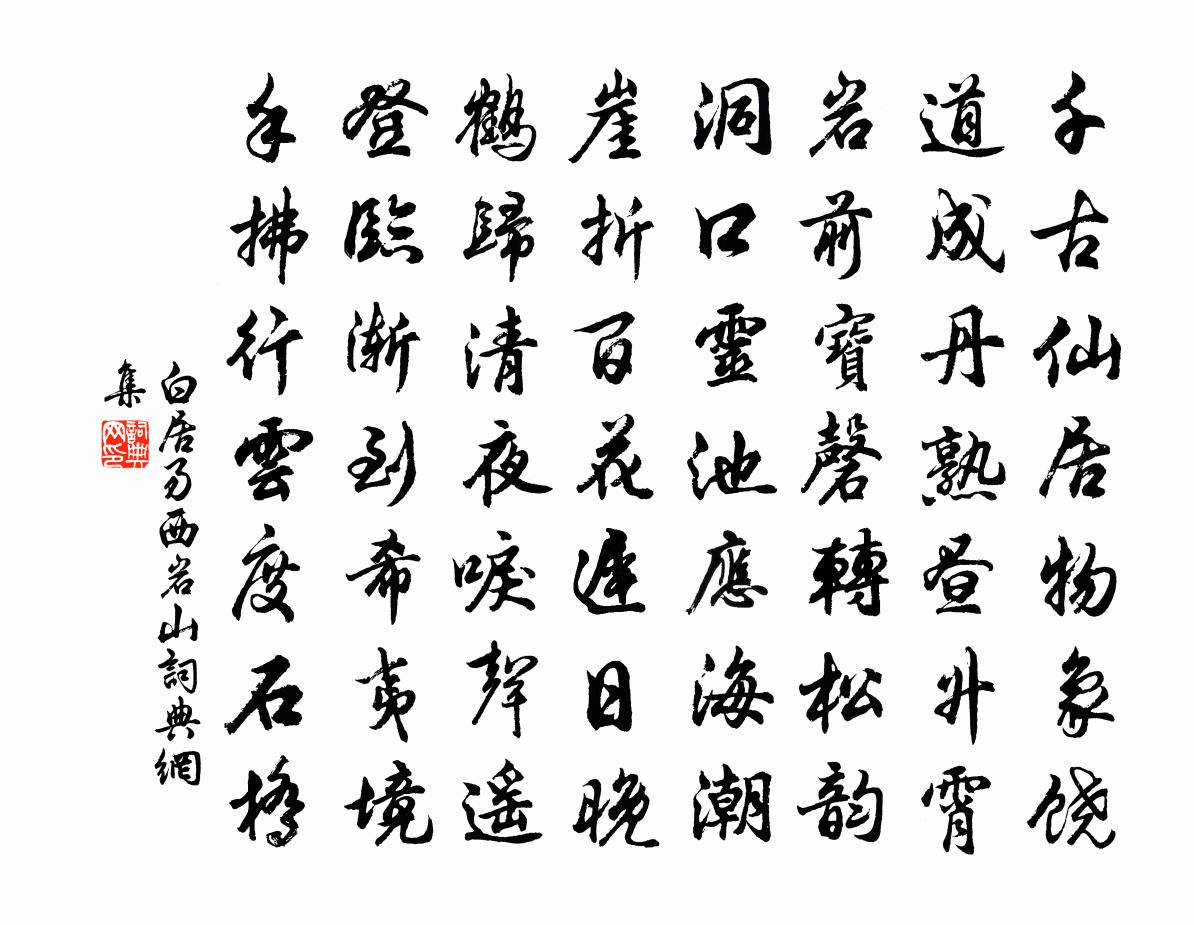 千古仙居物象饶
道成丹熟昼升霄
岩前寶磬轉松韵
洞口靈池應海潮
崖折百花遲日晚
鶴歸清夜唳聲遥
登臨漸到希夷境
手拂行雲度石橋
白居易西岩山詞典網
集
詞典网印